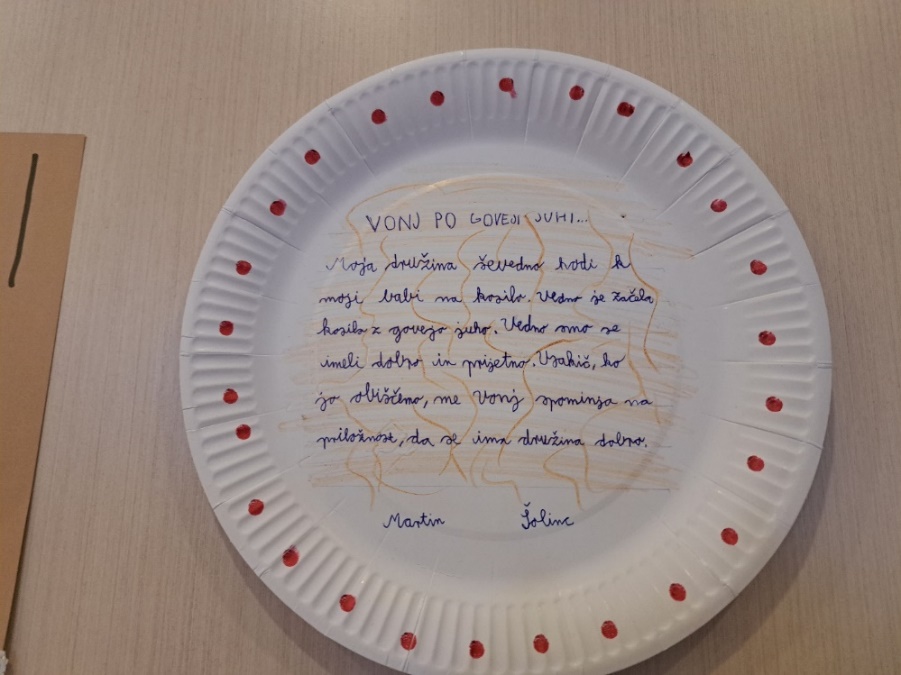 VONJ PO GOVEJI JUHI...
Moja družina ševedno hodi k
moji babi na kosilo. Vedno se začela
kosilo z govejo juho. Vedno smo se
imeli dobro in prijetno. Vsakič, ko
jo obiščemo, me vonj spominja na
priložnost, da se ima družina dobro.
Martin Šolinc